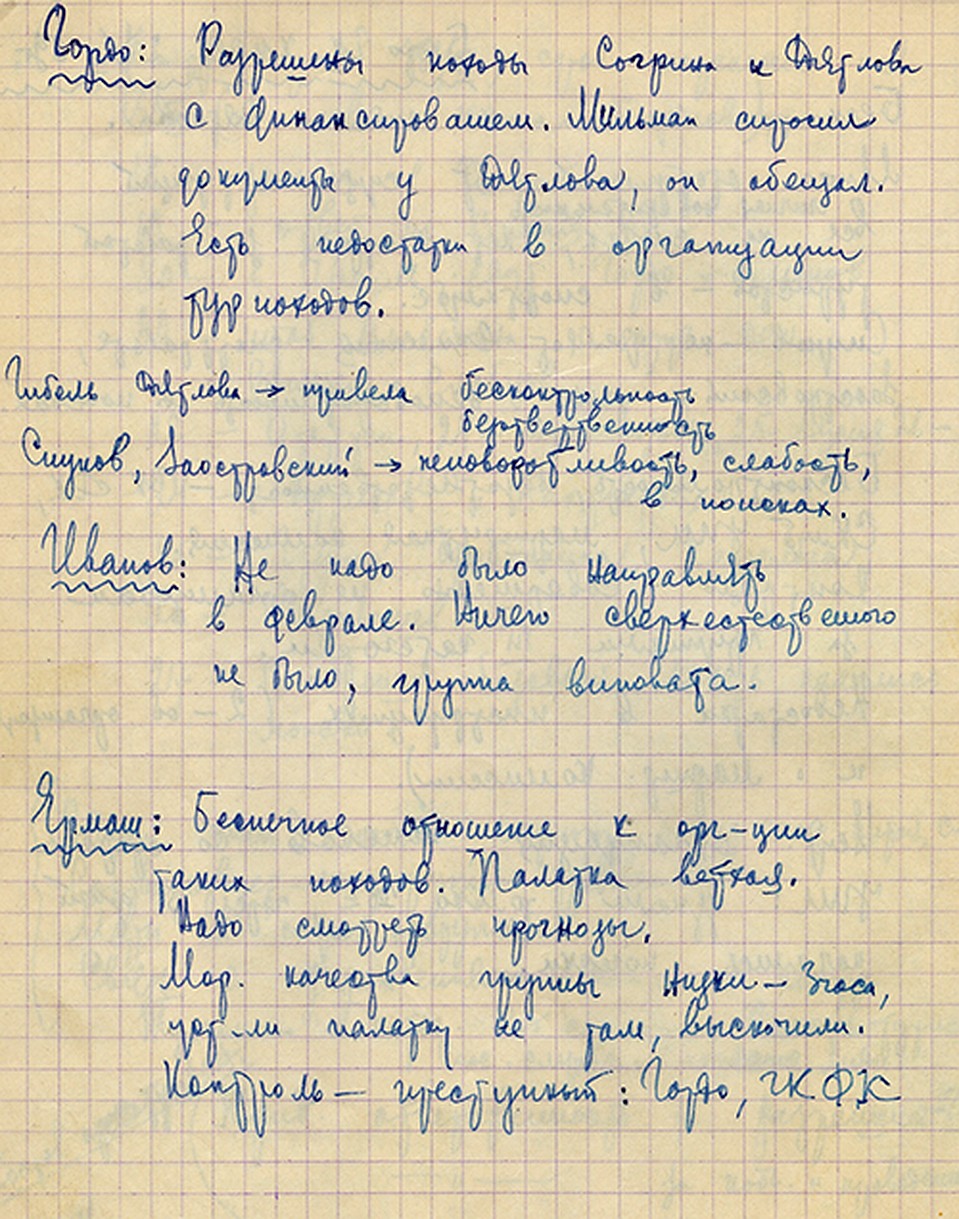 Гордо: Разрешены походы Согрина и Дятлова
с финансированием. Мильман спросил
документы у Дятлова, он обещал.
Есть недостатки в организации
турпоходов.
Гибель Дятлова → привела бесконтрольность
безответственность
Слунов, Заостровский → неповоротливость, слабость,
в поисках.
Иванов: Не надо было направлять
в феврале. Ничего сверхестественого
не было, группа виновата.
Ермаш: Беспечное отношение к орг-ции
таких походов. Палатка ветхая.
Надо смотреть прогнозы.
Мор. качества группы низки – 3 часа,
уст-ли палатку не там, выскочили.
Контроль — преступный: Гордо, ГК ФК